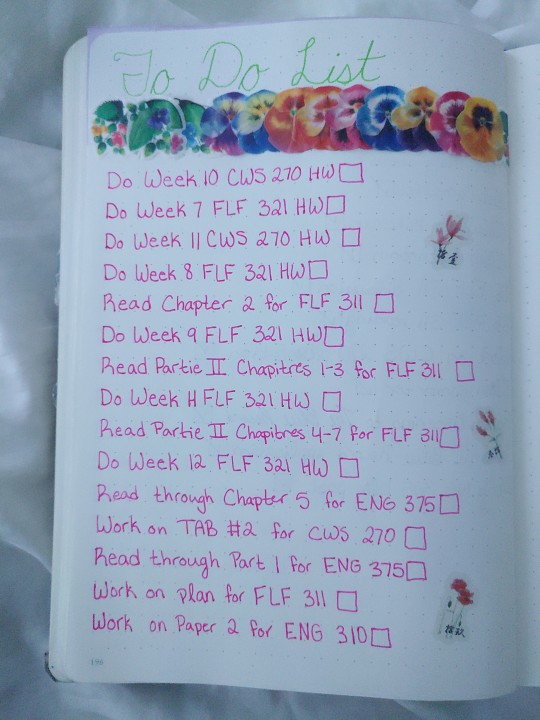 To Do List
Do Week 10 CWS 270 HW
Do Week 7 FLF 321 HW
Do Week 11 CWS 270 HW
Do Week 8 FLF 321 HW
Read Chapter 2 for FLF 311
Do Week 9 FLF 321 HW
Read Partie II Chapitres 1-3 for FLF 311
Do Week 11 FLF 321 HW
Read Partie II Chapitres 4-7 for FLF 311
Do Week 12 FLF 321 HW
Read through Chapter 5 for ENG 375
Work on TAB #2 for CWS 270
Read through Part 1 for ENG 375
Work on plan for FLF 311
Work on Paper 2 for ENG 310
196